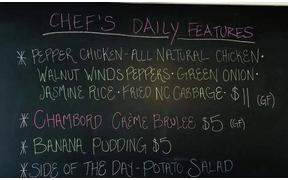 CHEF'S DAILY FEATURES
* PEPPER CHICKEN-ALL NATURAL CHICKEN·
WALNUT WINDS PEPPERS·GREEN ONION·
JASMINE RICE·FRIED NC CABBAGE· $11 (GF)
* CHAMBORD CRÈME BRULEE $5 (GF)
* BANANA PUDDING $5
* SIDE OF THE DAY-POTATO SALAD